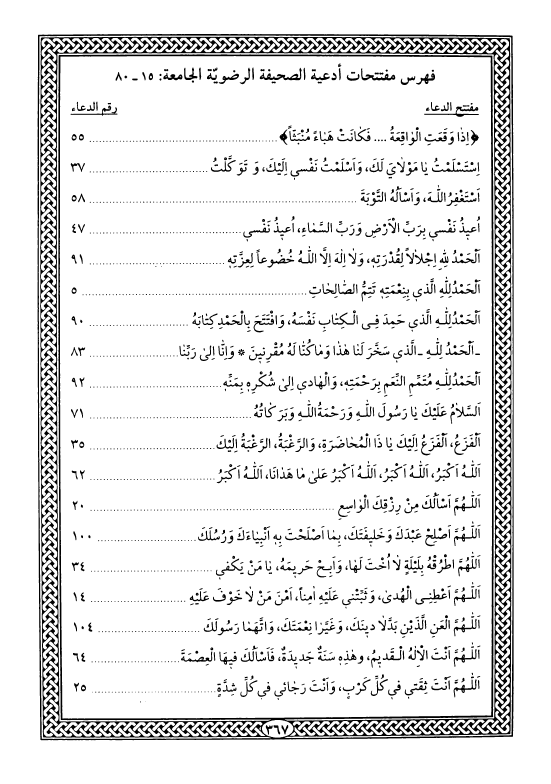 فهرس مفتتحات أدعية الصحيفة الرضويّة الجامعة: ١٥ ـ ٨٠
مفتتح الدعاء رقم الدعاء
﴿إِذٰا وَقَعَتِ الْوٰاقِعَةُ .... فَكٰانَتْ هَبٰاءً مُنْبَثّاً﴾ ٥٥
اِسْتَسْلَمْتُ يٰا مَوْلٰايَ لَكَ، وَاَسْلَمْتُ نَفْسي اِلَيْكَ، وَ تَوَكَّلْتُ ٣٧
اَسْتَغْفِرُ اللّٰهَ، وَاَسْاَلُهُ التَّوْبَةَ ٥٨
اُعيذُ نَفْسي بِرَبِّ الْاَرْضِ وَرَبِّ السَّمٰاءِ، اُعيذُ نَفْسي ٤٧
اَلْحَمْدُ لِلّٰهِ اِجْلٰالاً لِقُدْرَتِهِ، وَلٰا اِلٰهَ اِلَّا اللّٰهُ خُضُوعاً لِعِزَّتِهِ ٩١
اَلْحَمْدُلِلّٰهِ الَّذي بِنِعْمَتِهِ تَتِمُّ الصّٰالِحٰاتِ ٥
اَلْحَمْدُلِلّٰهِ الَّذي حَمِدَ فِي الْكِتٰابِ نَفْسَهُ، وَافْتَتَحَ بِالْحَمْدِ كِتٰابَهُ ٩٠
ـ اَلْحَمْدُ لِلّٰهِ ـ الَّذي سَخَّرَ لَنٰا هٰذٰا وَمٰا كُنّٰا لَهُ مُقْرِنينَ * وَاِنّٰا اِلىٰ رَبِّنٰا ٨٣
اَلْحَمْدُلِلّٰهِ مُتَمِّمِ النِّعَمِ بِرَحْمَتِهِ، وَالْهٰادي اِلىٰ شُكْرِهِ بِمَنِّهِ ٩٢
اَلسَّلٰامُ عَلَيْكَ يٰا رَسُولَ اللّٰهِ وَرَحْمَةُ اللّٰهِ وَبَرَكٰاتُهُ ٧١
اَلْفَزَعُ، اَلْفَزَعُ اِلَيْكَ يٰا ذَا الْمُحٰاضَرَةِ، وَالرَّغْبَةُ، الرَّغْبَةُ اِلَيْكَ ٣٥
اَللّٰهُ اَكْبَرُ، اَللّٰهُ اَكْبَرُ، اَللّٰهُ اَكْبَرُ عَلىٰ مٰا هَدٰانٰا، اَللّٰهُ اَكْبَرُ ٦٢
اَللّٰهُمَّ اَسْاَلُكَ مِنْ رِزْقِكَ الْوٰاسِعِ ٢٠
اَللّٰهُمَّ اَصْلِحْ عَبْدَكَ وَخَليفَتَكَ، بِمٰا اَصْلَحْتَ بِهِ اَنْبِيٰاءَكَ وَرُسُلَكَ ١٠٠
اَللّٰهُمَّ اطْرُقْهُ بِلَيْلَةٍ لٰا اُخْتَ لَهٰا، وَاَبِحْ حَريمَهُ، يٰا مَنْ يَكْفي ٣٤
اَللّٰهُمَّ اَعْطِنِي الْهُدىٰ، وَثَبِّتْني عَلَيْهِ اٰمِناً، اَمْنَ مَنْ لٰا خَوْفَ عَلَيْهِ ١٤
اَللّٰهُمَّ الْعَنِ الَّذَيْنِ بَدَّلٰا دينَكَ، وَغَيَّرٰا نِعْمَتَكَ، وَاتَّهَمٰا رَسُولَكَ ١٠٤
اَللّٰهُمَّ اَنْتَ الْاِلٰهُ الْقَديمُ، وَهٰذِهِ سَنَةٌ جَديدَةٌ، فَاَسْاَلُكَ فيهَا الْعِصْمَةَ ٦٤
اَللّٰهُمَّ اَنْتَ ثِقَتي في كُلِّ كَرْبٍ، وَاَنْتَ رَجٰائي في كُلِّ شِدَّةٍ ٢٥
٣٦٧